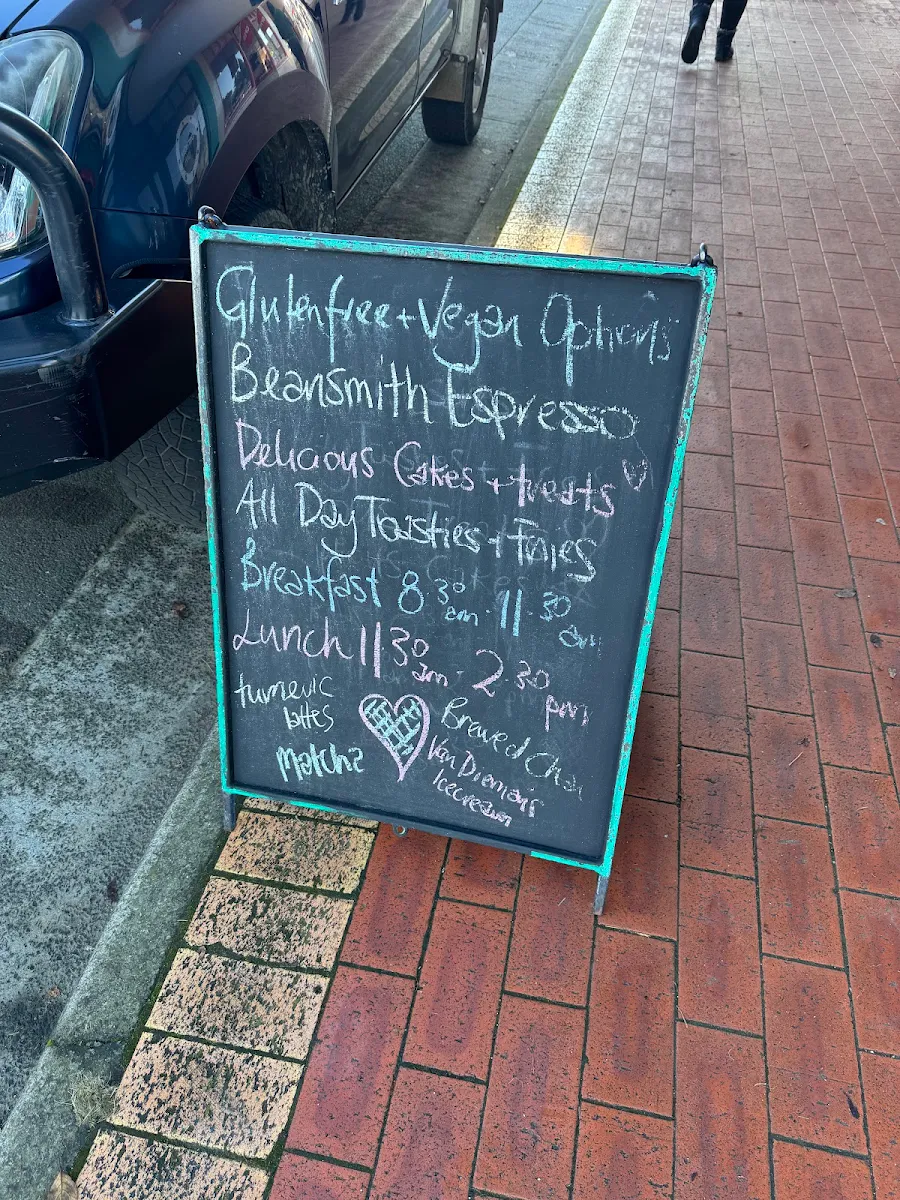 Glutenfree + Vegan Options
Beansmith Espresso
Delicious Cakes + treats
All Day Toasties + Fries
Breakfast 8.30 am - 11.30 am
Lunch 11.30 am - 2.30 pm
tumeric
lattes
Matcha
Brewed Chai
Van Dieman's
Icecream